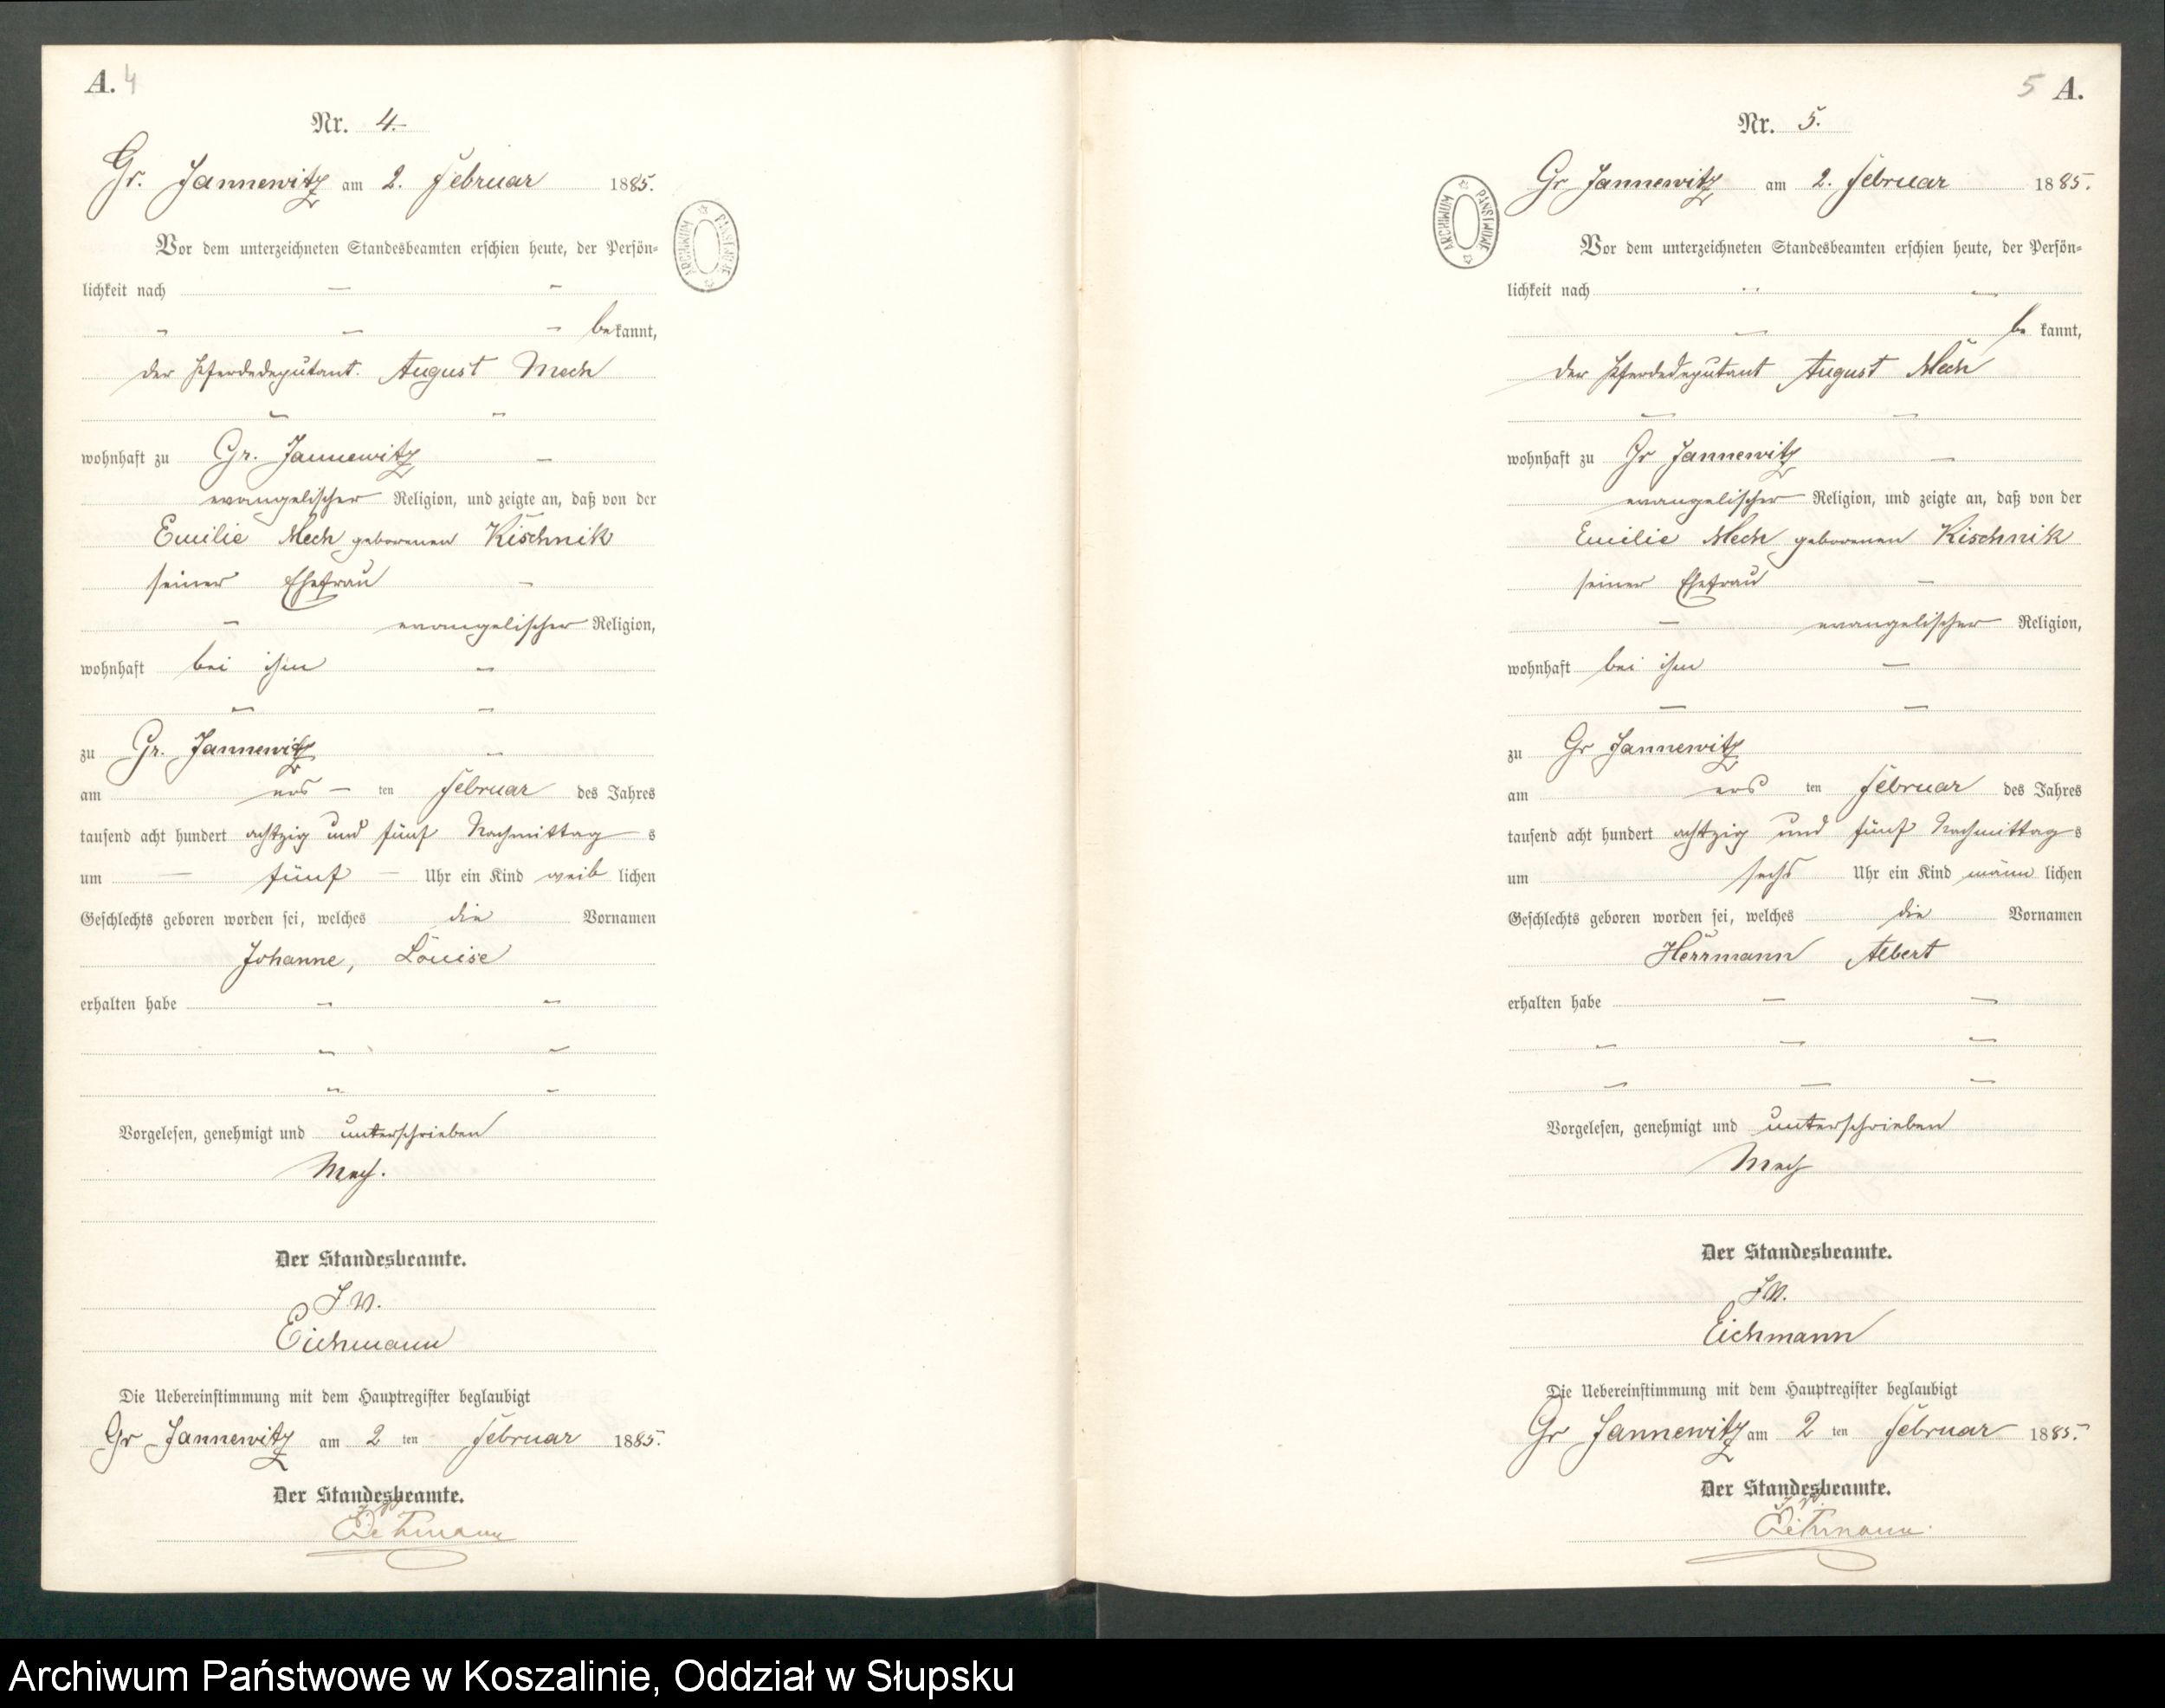 A. 4
Nr. 4.
Gr. Jannewitz am 2. Februar 1885.
Vor dem unterzeichneten Standesbeamten erschien heute, der Persön=
lichkeit nach
bekannt,
der Pferdedeputant. August Mech
wohnhaft zu Gr. Jannewitz
evangelischer Religion, und zeigte an, daß von der
Emilie Mech geborenen Kischnik
seiner Ehefrau
evangelischer Religion,
wohnhaft bei ihm
zu Gr. Jannewitz
am ers ten Februar des Jahres
tausend acht hundert achtzig und fünf Nachmittag s
um fünf Uhr ein Kind weib lichen
Geschlechts geboren worden sei, welches die Vornamen
Johanne, Louise
erhalten habe
Vorgelesen, genehmigt und unterschrieben
Mech.
Der Standesbeamte.
J. V.
Eichmann
Die Uebereinstimmung mit dem Hauptregister beglaubigt
Gr Jannewitz am 2 ten Februar 1885.
Der Standesbeamte.
J. V.
Eichmann
ARCHIWUM PAŃSTWOWE
5 A.
Nr. 5.
Gr Jannewitz am 2. Februar 1885.
ARCHIWUM PAŃSTWOWE
Vor dem unterzeichneten Standesbeamten erschien heute, der Persön=
lichkeit nach
be kannt,
der Pferdedeputant August Mech
wohnhaft zu Gr Jannewitz
evangelischer Religion, und zeigte an, daß von der
Emilie Mech geborenen Kischnik
seiner Ehefrau
evangelischer Religion,
wohnhaft bei ihm
zu Gr Jannewitz
am ers ten Februar des Jahres
tausend acht hundert achtzig und fünf Nachmittag s
um sechs Uhr ein Kind männ lichen
Geschlechts geboren worden sei, welches die Vornamen
Herrmann Albert
erhalten habe
Vorgelesen, genehmigt und unterschrieben
Mech
Der Standesbeamte.
J. V.
Eichmann
Die Uebereinstimmung mit dem Hauptregister beglaubigt
Gr Jannewitz am 2 ten Februar 1885.
Der Standesbeamte.
J. V.
Eichmann.
Archiwum Państwowe w Koszalinie, Oddział w Słupsku